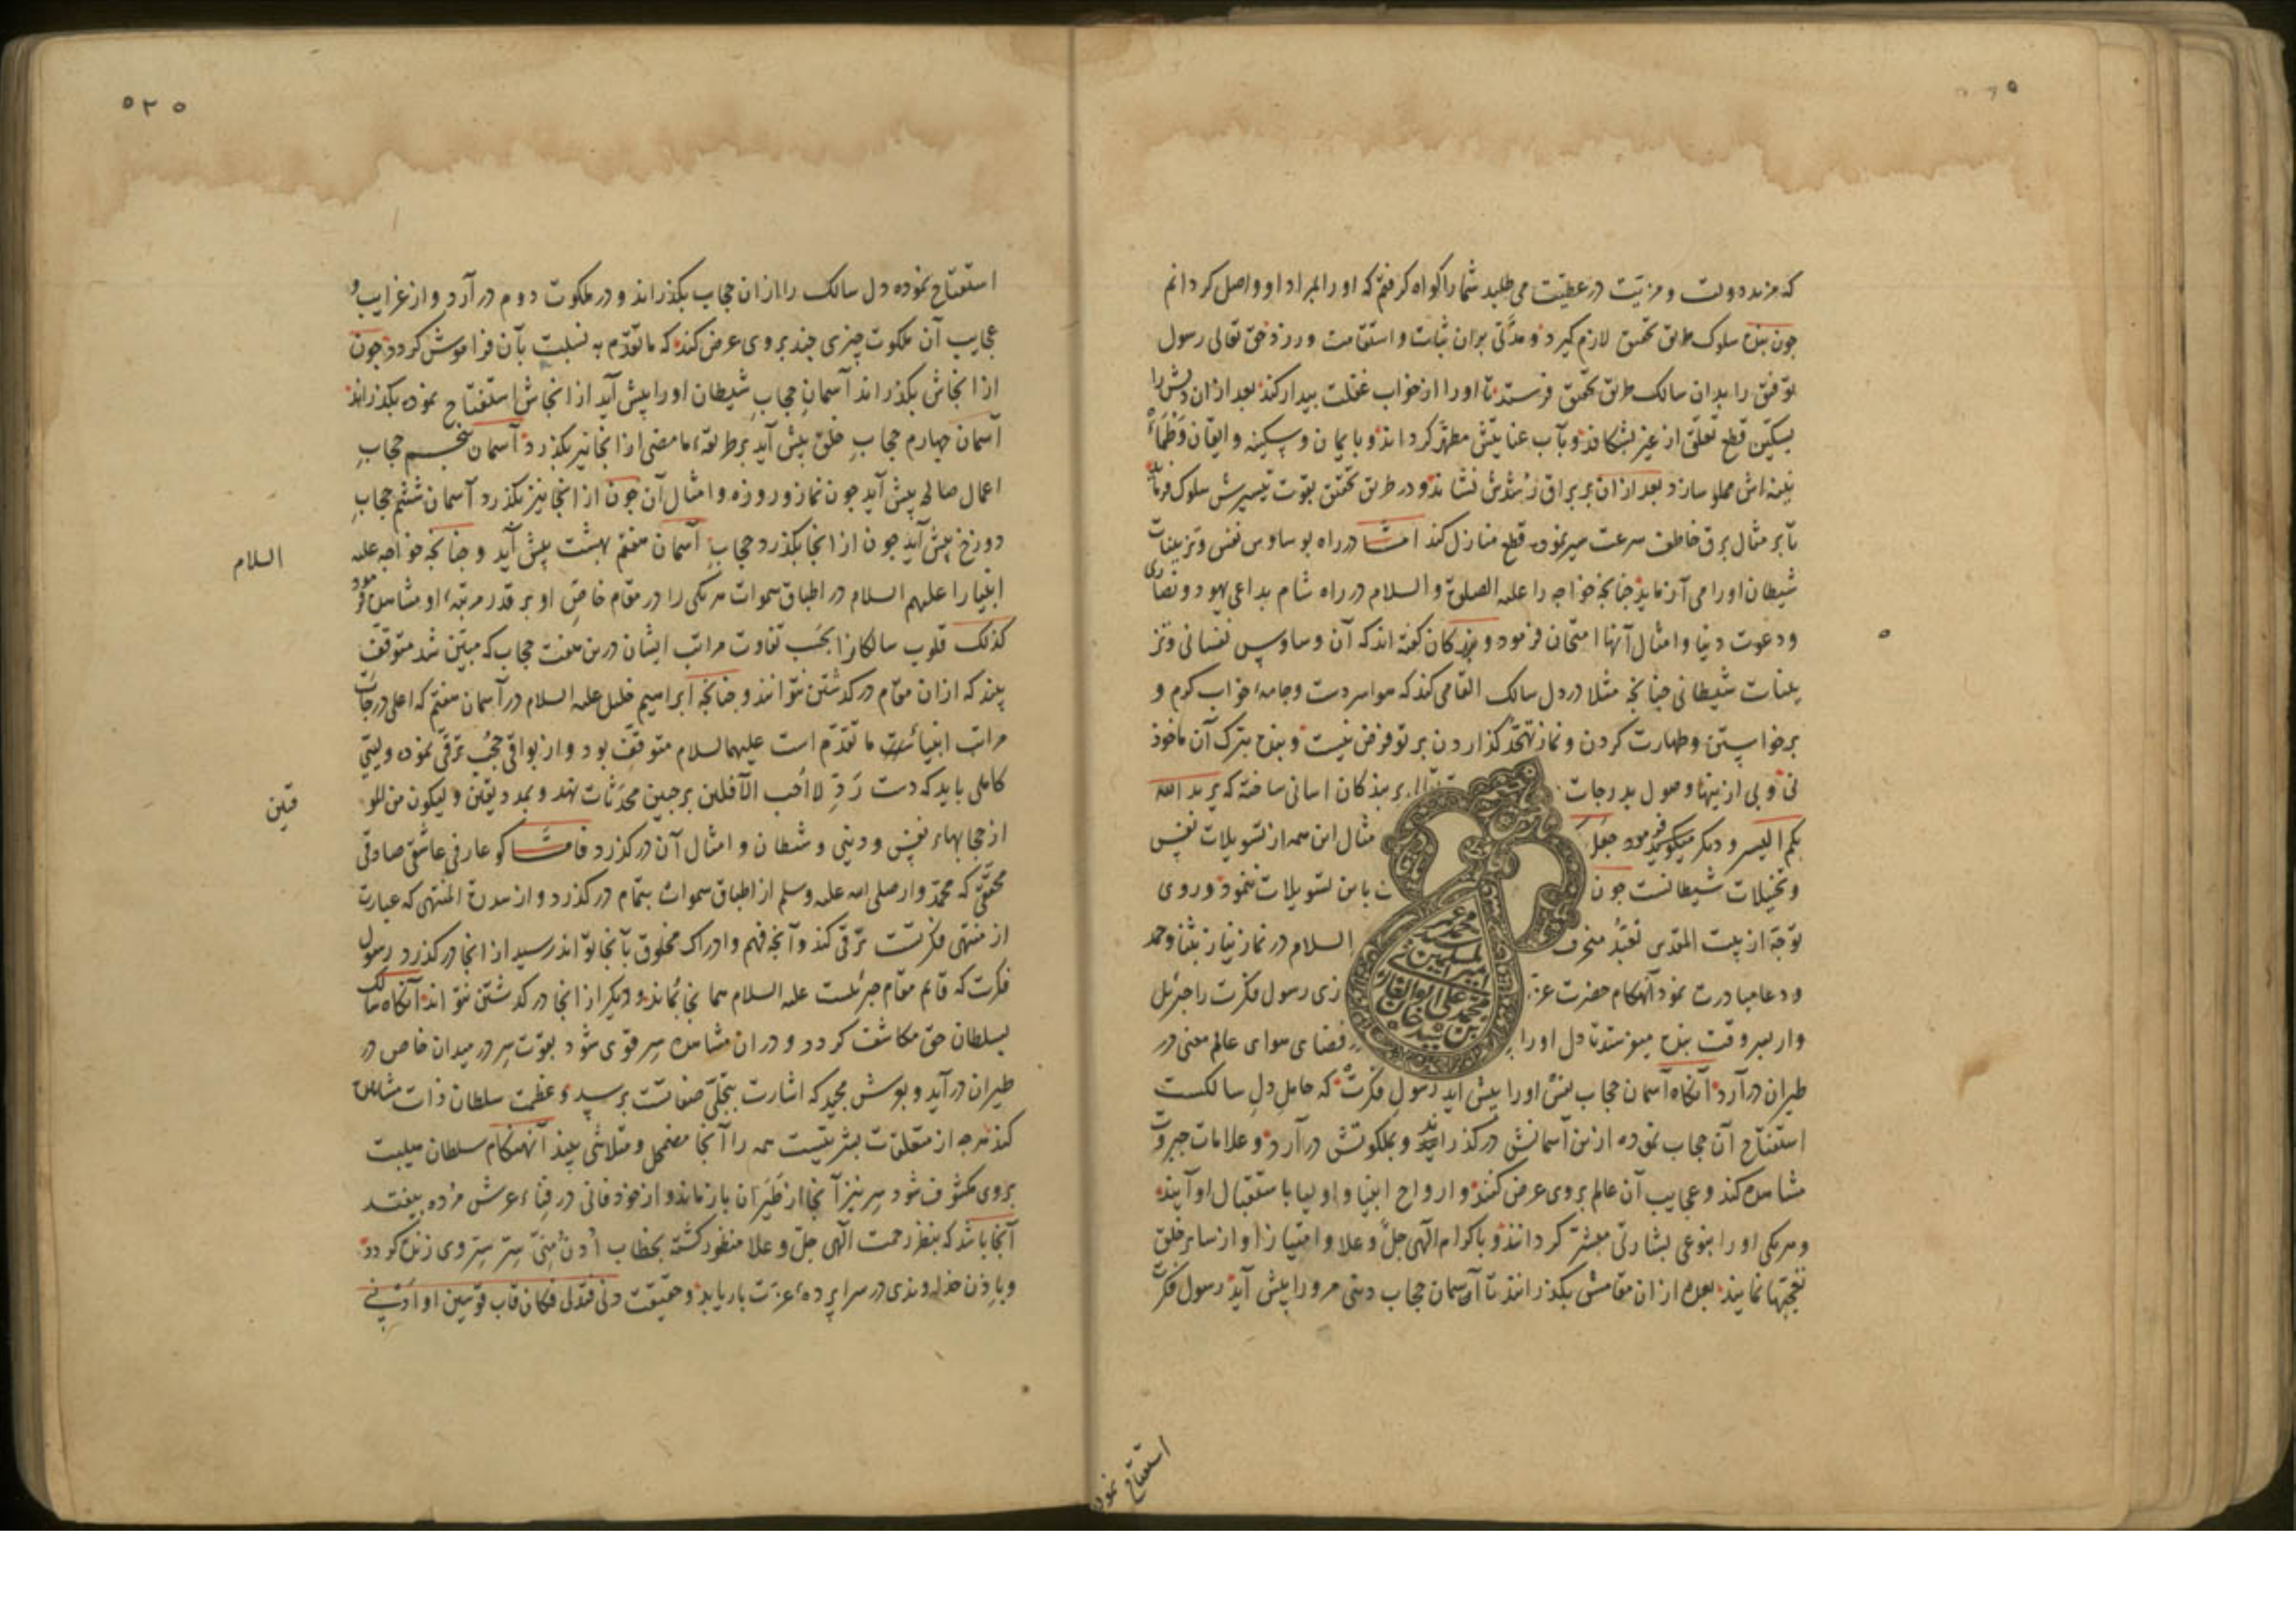 که مزید دولت و مزیت در عطیت می طلبد شما را کواه کرفتم که او را بمراد او واصل کردانم
جون بنده سلوک طریق تحقیق لازم کیرد و مدتی بران ثبات و استقامت ورزد حق تعالی رسول
توفیق را بدان سالک طریق تحقیق فرستد تا او را از خواب غفلت بیدار کند بعد ازان دلش را
بسکین قطع تعلق از غیر بشکافد و بآب عنایتش مطهر کرداند و بایمان و سکینه و ایقان و
اش مملو سازد بعد ازان بر براق رشدش نشاند و در طریق تحقیق بقوت تیسیرش سلوک فرماید
تا بر مثال برق خاطف سرعت سیر نموده قطع منازل کند امّا در راه بوساوس نفس و تزیینات
شیطان او را می آزماید جنانجه خواجه را علیه الصلوة والسلام در راه شام بداعی یهود و نصاری
و دعوت دنیا و امثال آنها امتحان فرمود و بزرکان کفته اند که آن وساوس نفسانی و تز
یینات شیطانی جنانجه مثلا در دل سالک القا می کند که هوا سردست و جامه خواب کرم و
برخواستن و طهارت کردن و نماز تهجد کزاردن بر تو فرض نیست و بنده بترک آن ماخوذ
نی و بی ازینها وصول بدرجات بر بندکان اسانی ساخته که یرید الله
بکم الیسر و دیکر میکوید فرموده جعل مثال این همه از تسویلات نفس
و تخییلات شیطانست جون باین تسویلات ننمود و روی
توجه از بیت المقدس تعبد منحرف السلام در نماز نیاز بثنا و حمد
و دعا مبادرت نمود آنهنکام حضرت عزت رسول فکرت را جبرئیل
وار بسر وقت بنده میفرستد تا دل او را فضای هوای عالم معنی در
طیران درآرد آنکاه آسمان حجاب نفس او را پیش اید رسول فکرت که حامل دل سالکست
استفتاح آن حجاب نموده ازین آسمانش درکذراند و بملکوتش درآرد و علامات جبروت
مشاهده کند و عجایب آن عالم بروی عرض کنند و ارواح انبیا و اولیا باستقبال او آیند
و هر یکی او را بنوعی بشارتی مبشر کردانند و باکرام الهی جل و علا و امتیاز او از سایر خلق
تعجبها نمایند بعده ازان مقامش بکذرانند تا آسمان حجاب دنیی مر ورا پیش آید رسول فکرت
استفتاح نموده
۵۲۵
استفتاح نموده دل سالک را ازان حجاب بکذراند و در ملکوت دوم درآرد و از غرایب و
عجایب آن ملکوت جیزی جند بروی عرض کند که ما تقدم به نسبت بآن فراموش کردد جون
از انجاش بکذراند آسمان حجاب شیطان او را پیش آید از انجاش استفتاح نموده بکذراند
آسمان جهارم حجاب خلق پیش آید بر طریقه ما مضی از انجا نیز بکذرد آسمان پنجم حجاب
اعمال صالح پیش آید جون نماز و روزه و امثال آن جون از انجا نیز بکذرد آسمان ششم حجاب
دوزخ پیش آید جون از انجا بکذرد حجاب آسمان هفتم بهشت پیش آید و جنانجه خواجه علیه
السلام
انبیا را علیهم السلام در اطباق سموات هر یکی را در مقام خاص او بر قدر مرتبه او مشاهده فرمود
کذلک قلوب سالکانرا بحسب تفاوت مراتب ایشان درین هفت حجاب که مبین شد متوقف
بیند که ازان مقام درکذشتن نتوانند و جنانجه ابراهیم خلیل علیه السلام در آسمان هفتم که اعلی درجات
مراتب انبیا ما تقدم است علیهم السلام متوقف بود و از بواقی حجب ترقی نموده ولیی
کاملی باید که دست رد لا احب الآفلین بر جبین محدثات نهد و بمدد یقین و لیکون من المو
قنین
از حجابهاء نفس و دنیی و شیطان و امثال آن درکذرد فامّا کو عارفی عاشقی صادقی
محققی که محمد وار صلی الله علیه وسلم از اطباق سموات بتمام درکذرد و از سدرة المنتهی که عبارت
از منتهی فکرتست ترقی کند و آنجه فهم و ادراک مخلوق بآنجا تواند رسید از انجا درکذرد رسول
فکرت که قایم مقام جبرئیلست علیه السلام هم آنجا بماند و دیکر از انجا درکذشتن نتواند آنکاه سالک
بسلطان حق مکاشف کردد و دران مشاهده سر قوی شود بقوت سر در میدان خاص در
طیران درآید و بوش مجید که اشارت بتجلی صفاتست برسد و عظمت سلطان ذات مشاهده
کند هرجه از متعلقات بشریتست همه را آنجا مضمحل و متلاشی بیند آنهنکام سلطان هیبت
بروی مکشوف شود سر نیز آنجا از طیران باز ماند و از خود فانی در فناء عرش مرده بیفتد
آنجا باشد که بنظر رحمت الهی جل و علا منظور کشته بخطاب ادن منی سر سر وی زنده کردد
و باذن خداوندی در سراپرده عزت بار یابد و حقیقت دنی فتدلی فکان قاب قوسین او ادنی